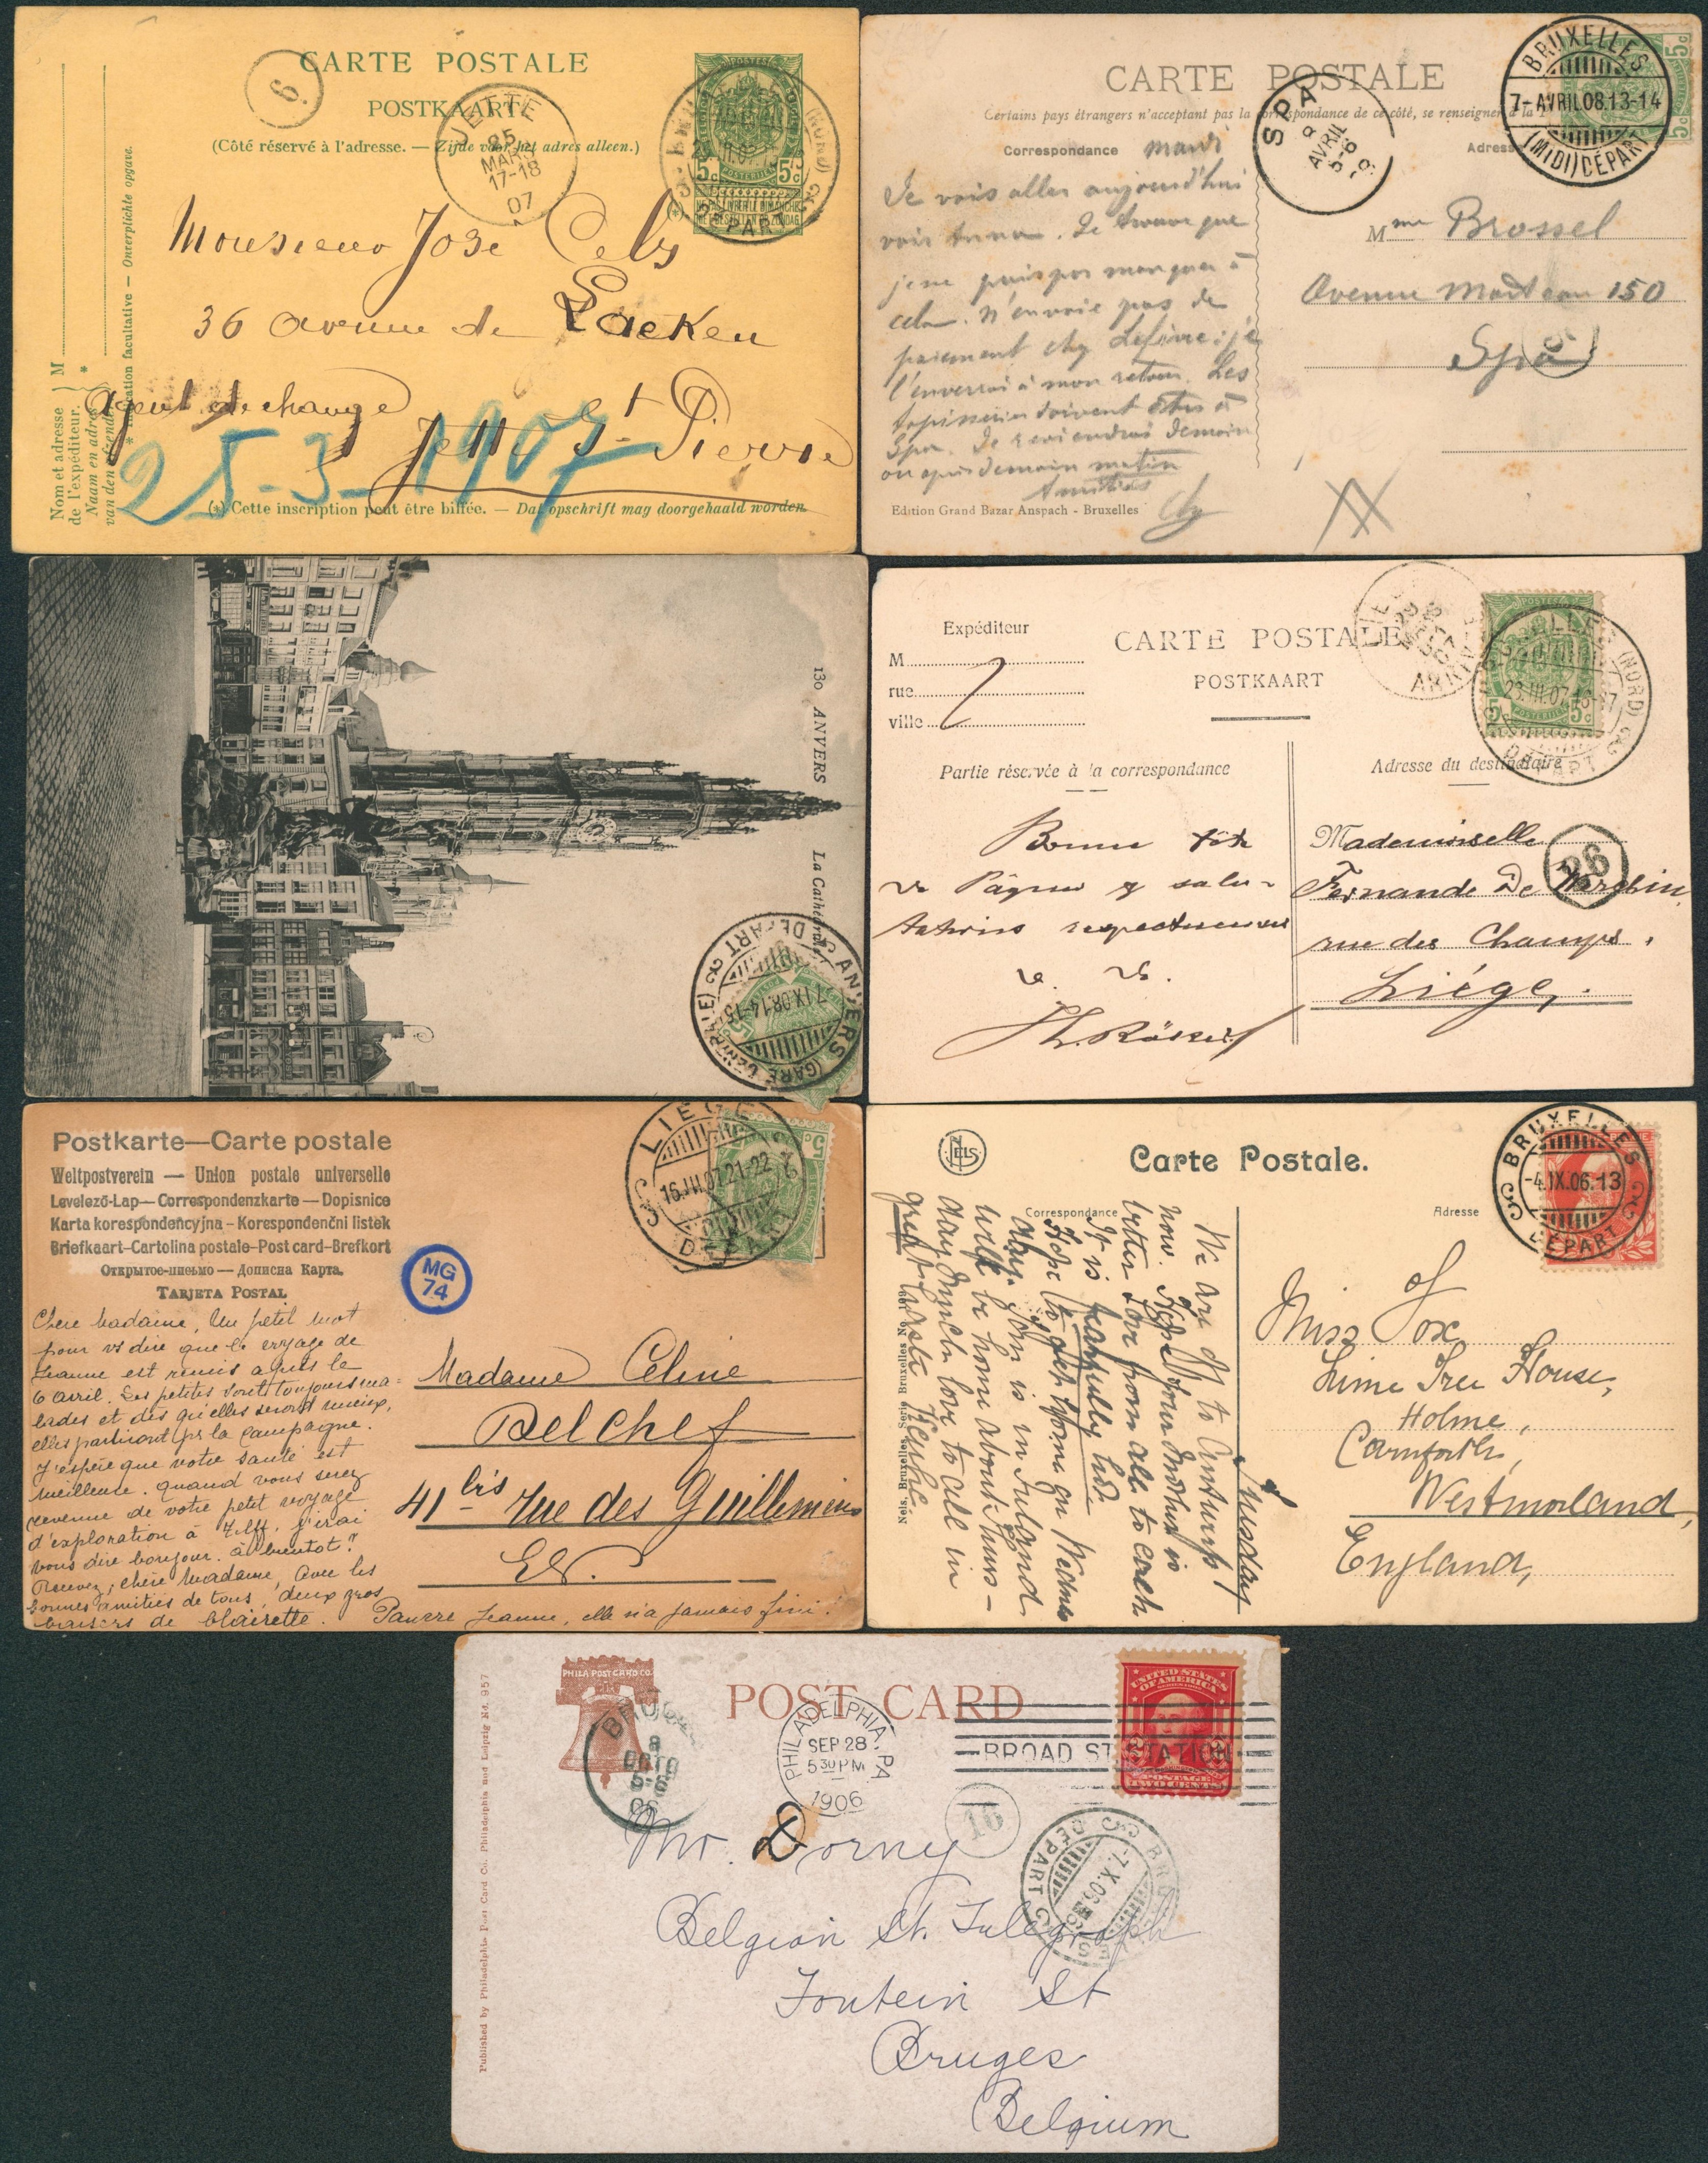 CARTE POSTALE
POSTKAART
(Côté réservé à l'adresse. — Zijde voor het adres alleen.)
6
JETTE
25
MARS
17-18
07
DÉPART
Monsieur José Cels
36 avenue de Laeken
agent de change
Jette St Pierre
25-3-1907
(*) Cette inscription peut être biffée. — Dat opschrift mag doorgehaald worden.
Nom et adresse
de l'expéditeur.
Naam en adres
van den afzender
M
* Indication facultative — Onverplichte opgave.
CARTE POSTALE
Certains pays étrangers n'acceptent pas la correspondance de ce côté, se renseigner à la
Correspondance
Adresse
BRUXELLES
7-AVRIL 08.13-14
(MIDI) DÉPART
SPA
AVRIL
5-6
mardi
Je vais aller aujourd'hui
voir . Je trouve que
je ne puis pas manquer à
cela. N'envoie pas de
paiement chez Lefèvre: je
l'enverrai à mon retour. Les
tapisseries doivent être à
Spa. Je reviendrai demain
ou après demain matin
Amitiés
Mme Brossel
Avenue Marteau 150
Spa
Edition Grand Bazar Anspach - Bruxelles
130 ANVERS La Cathédrale
ANVERS (GARE CENTRALE)
7.IX.08.14-15
DEPART
Expéditeur
M
rue
ville
CARTE POSTALE
POSTKAART
Partie réservée à la correspondance
Adresse du destinataire
BRUXELLES (NORD)
DÉPART
POSTES
5c POSTERIJEN 5c
26
Bonne fête
de Pâques & salu-
tations respectueuses
Mademoiselle
Fernande De
rue des Champs,
Liége.
Postkarte—Carte postale
Weltpostverein — Union postale universelle
Levelező-Lap—Correspondenzkarte—Dopisnice
Karta korespondencyjna-Korespondenční lístek
Briefkaart-Cartolina postale-Post card-Brefkort
Открытое-письмо — Дописна Карта.
TARJETA POSTAL
MG
74
LIEGE
21-22
DEPART
Chère Madame, Un petit mot
pour vs dire que le voyage de
Jeanne est remis après le
6 avril. Les petites sont toujours ma-
lades et dès qu'elles seront mieux,
elles partiront pr la campagne.
J'espère que votre santé est
meilleure. quand vous serez
revenue de votre petit voyage
d'exploration à Tilff, j'irai
vous dire bonjour. à bientôt?
Recevez, chère Madame, avec les
bonnes amitiés de tous, deux gros
baisers de Clairette. Pauvre Jeanne, elle n'a jamais fini!
Madame Céline
Delchef
41bis rue des Guillemins
EV.
NELS
Carte Postale.
Correspondance
Adresse
BRUXELLES
-4.IX.06.-13
DÉPART
Tuesday
We are off to Antwerp
now. Hope your Mother is
better. Love from all to each
It is fearfully hot.
Hope to get home on Wednes
day. John is in Jutland
will be home about Thurs-
day. Much love to all in
great haste
Miss Fox
Lime Tree House,
Holme,
Carnforth,
Westmorland,
England,
Nels, Bruxelles, Série Bruxelles No
PHILA POST CARD CO.
POST CARD
PHILADELPHIA, PA
SEP 28
5 30 PM
1906
BROAD ST STATION
UNITED STATES
OF AMERICA
POSTAGE
TWO CENTS
8
OCTO
5-6
06
16
DEPART
Mr. Dorny
Belgian St. Telegraph
Fontein St
Bruges
Belgium
Published by Philadelphia Post Card Co. Philadelphia and Leipzig No. 957